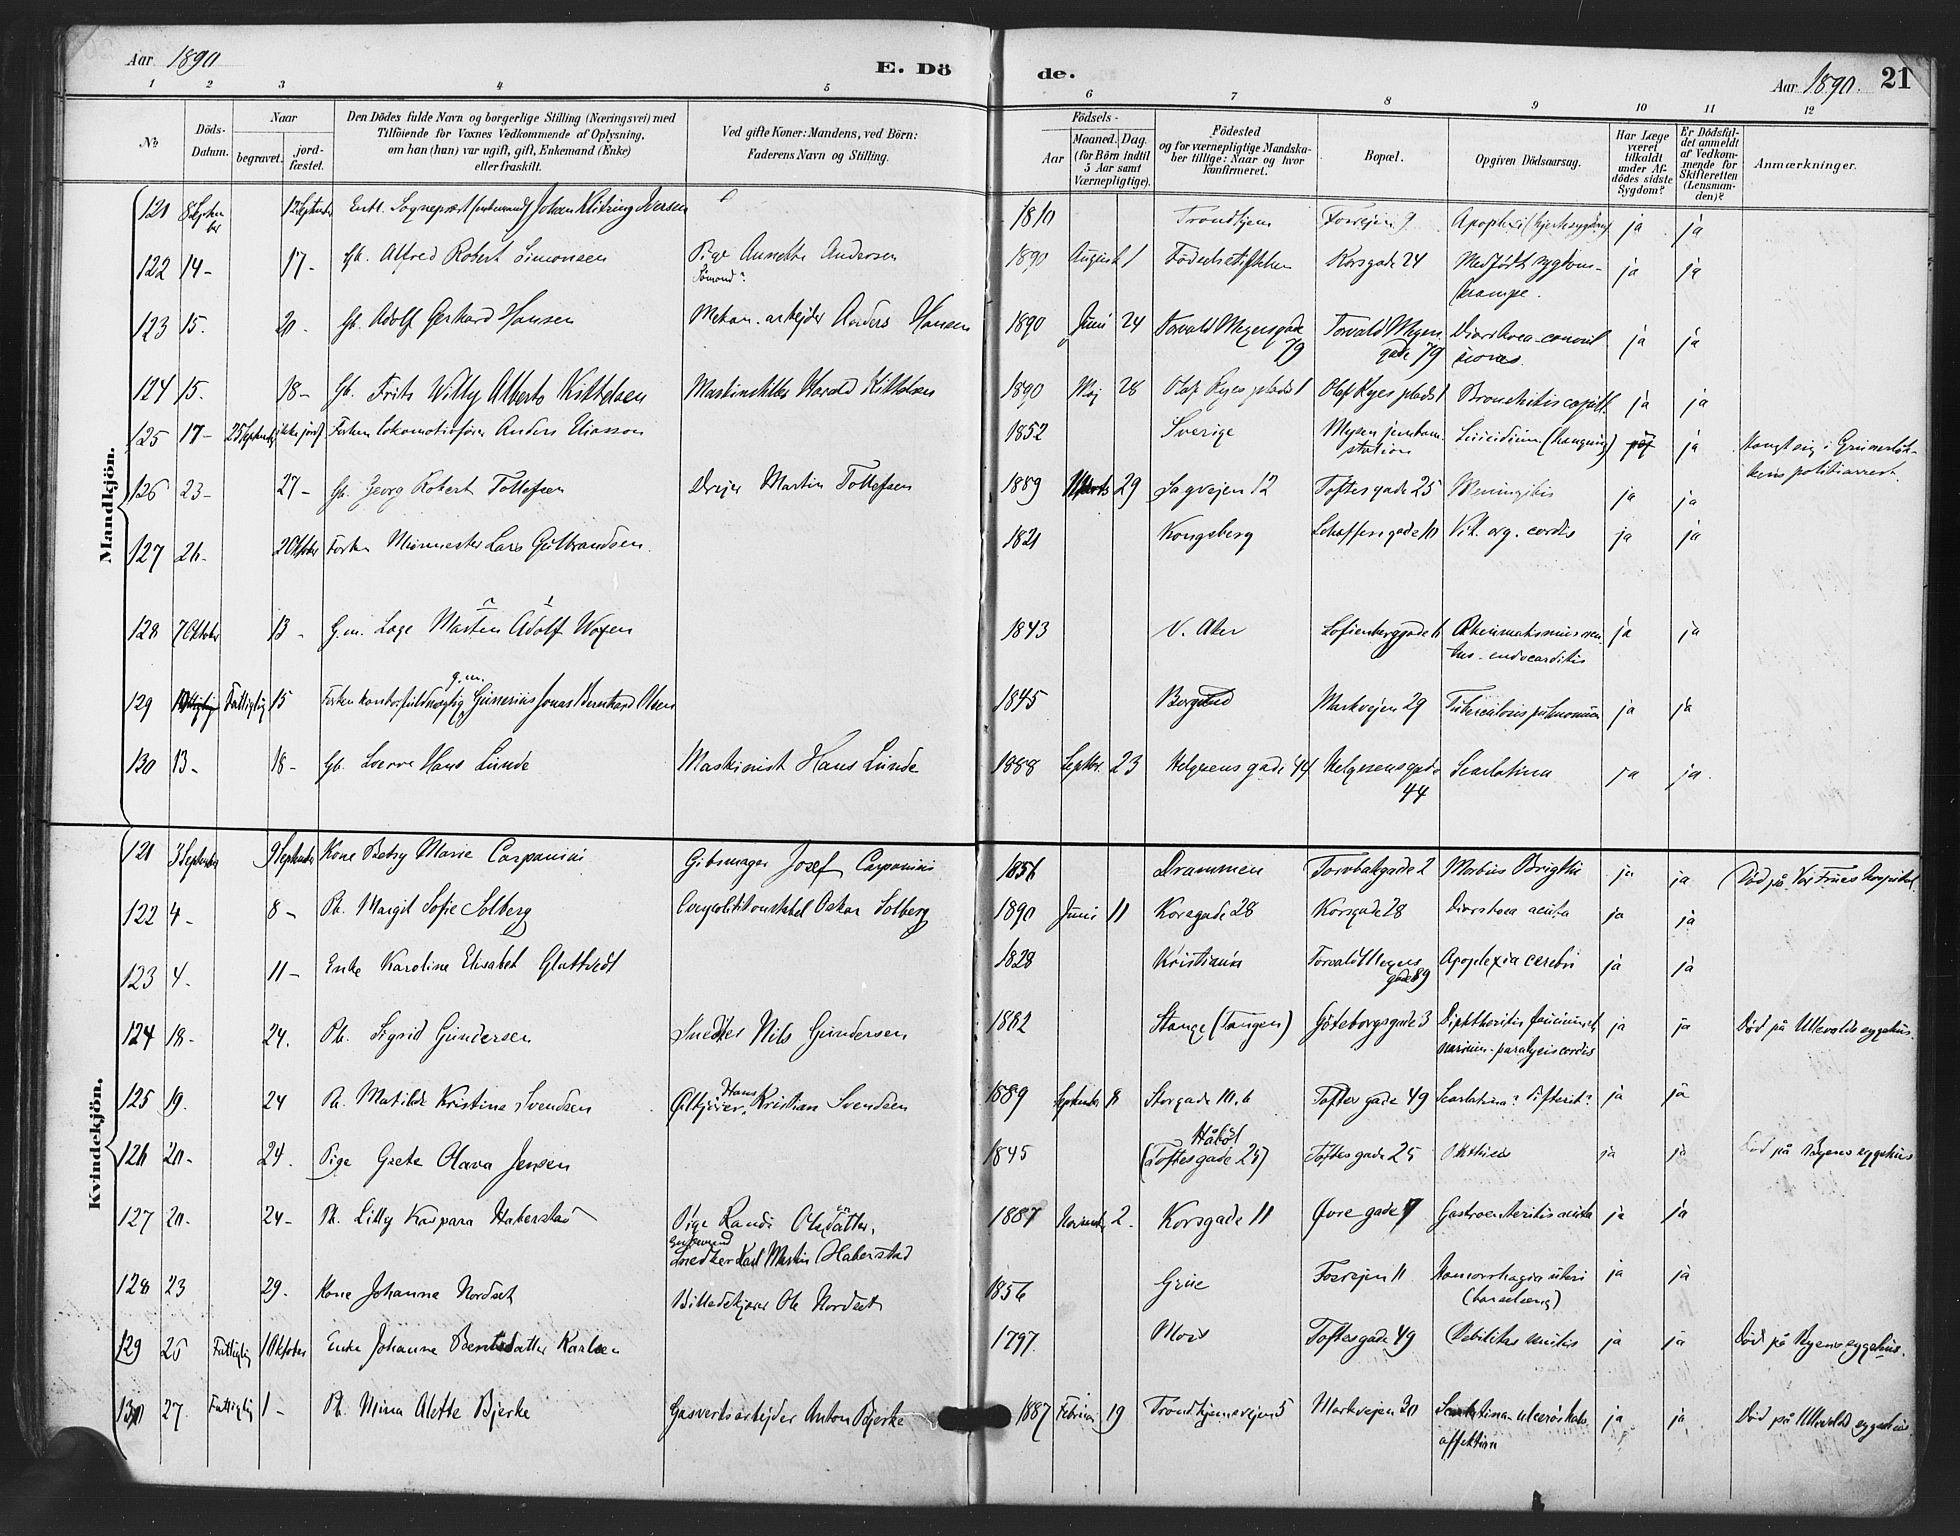 Aar 1890
E. Dö
de.
Aar 1890.
21
1 2 3 4 5 6 7 8 9 10 11 12
No
Döds-Datum.
Naar
begravet.
jord-fæstet.
Den Dödes fulde Navn og borgerlige Stilling (Næringsvei) med
Tilföiende for Voxnes Vedkommende af Oplysning,
om han (hun) var ugift, gift, Enkemand (Enke)
eller fraskilt.
Ved gifte Koner: Mandens, ved Börn:
Faderens Navn og Stilling.
Födsels-
Aar
Maaned. Dag.
(for Börn indtil
5 Aar samt
Værnepligtige).
Födested
og for værnepligtige Mandska-
ber tillige: Naar og hvor
konfirmeret.
Bopæl.
Opgiven Dödsaarsag.
Har Læge
været
tilkaldt
under Af-
dödes sidste
Sygdom?
Er Dödsfal-
det anmeldt
af Vedkom-
mende for
Skifteretten
(Lensman-
den)?
Anmærkninger.
Mandkjön.
121 8 September 12 September Johan Iversen 1810 Trondhjem Fosvejen 9 ja ja
122 14 - 17 - Gb. Alfred Robert Simonsen Pige Annette Andersen 1890 August 1 Födselsstiftelsen Korsgade 24 Medfødt ja ja
krampe.
123 15. 20 - Gb. Adolf Gerhard Hansen Mekan. arbejder Anders Hansen 1890 Juni 24 Torvald Meyersgade 79 Torvald Meyersgade 79 Diarrhoea - convulsiones ja ja
124 15. 18 - Gb. Frits Willy Alberto Kittelsen Harald Kittelsen 1890 Maj 28 Olaf Ryes plads 1 Olaf Ryes plads 1 Bronchitis capill. ja ja
125 17 - 25 September Forhen lokomotivfører Anders Eliasson 1852 Sverige Mysen jernban. station Suicidium (hangning) ja Hængt sig i Grünerløk-
kens politiarrest.
126 23 - 27 - Gb. Georg Robert Tollefsen Drejer Martin Tollefsen 1889 Marts 29 Sagvejen 12 Toftesgade 25 Meningitis ja ja
127 26 - 2 Oktober Forhen Murmester Lars Gulbrandsen. 1821 Kongsberg 10 Vit. org. cordis ja ja
128 7 Oktober 13 - G.m. Martin Adolf Woxen 1843 V. Aker Sofienberggade Rheumatismus
endocarditis ja ja
129 Fattiglig 15 Forhen kontorfuldmægtig g.m. Gunerius Jonas Bernhard Olsen 1845 Markvejen 29 Tuberculosis pulmonum ja ja
130 13 - 18 - Gb. Sverre Hans Lunde Maskinist Hans Lunde 1888 Septbr. 23 Helgesens gade 44 Helgesensgade 44 Scarlatina ja ja.
Kvindekjön.
121 3 September 9 September Kone Betsy Marie Caspanini Gibsmager Josef Caspanini 1856 Drammen Torvbakgade 2 Morbus Brigthii ja ja Død på Vor Frues hospital.
122 4 - 8 - Pb. Margit Sofie Solberg Oskar Solberg 1890 Juni 11 Korsgade 28 Korsgade 28 Diarrhoea acuta ja ja
123 4. 11 - Enke Karoline Elisabet Glattvedt 1828 Kristiania Torvald Meyers gade 89 Apoplexia cerebri ja ja
124 18 - 24. Pb. Sigrid Gundersen Snedker Nils Gundersen 1882 Stange (Tangen) Göteborgsgade 3 Diphtheritis faucium et
narium - paralysis cordis ja ja Død på Ullevolds sygehus.
125 19. 24 Pb. Matilde Kristine Svendsen Ølkjører Hans Kristian Svendsen 1889 September 8 Storgade 10.6 Toftes gade 49 Scarlatina? Difterit? ja ja
126 20 - 24. Pige Grete Olava Jensen 1845 Håbøl (Toftes gade 25) Toftes gade 25 ja ja Død på Byens sygehus
127 20 - 24 - Pb. Lilly Kaspara Haberstad Pige Randi Olsdatter,
Snedker Karl Martin Haberstad 1887 November 2. Korsgade 11 Øvre gade 7 Gastroenteritis acuta ja ja
128 23 29. Kone Johanne Nordset Ole Nordset 1856 Grue Fosvejen 11 Hæmorrhagia uteri
(barselseng) ja ja
129 25 Fattiglig 1 Oktober Enke Johanne Berntsdatter Karlsen 1797 Moss Toftesgade 49 Debilitas senilis ja ja Død på Byens sygehus.
130 27 Fattiglig 1 - Pb. Mina Alette Bjerke Gasverksarbejder Anton Bjerke 1887 Februar 19 Trondhjemsvejen 5 Markvejen 30 Scarlatina
affektion ja ja Død på Ullevolds sygehus